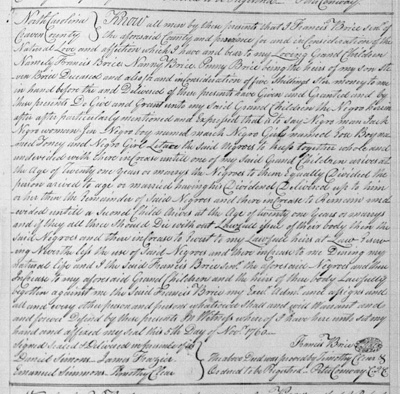 North Carolina } Know all men by these presents that I Francis Brice Senr. of
Craven County } the aforesaid County and province for and in Consideration of the
Natural Love and affection which I have and bear to my Loving Grand Children
Namely Francis Brice Nanny Brice Penny Brice being the heirs of my Son
Brice Deceased and also in Consideration of five Shillings Str. money to me
in hand before the and Delivered of these presents have Given and Granted and by
these presents Do Give and Grant unto my Said Grand Children the Negros herein
after particularly mentioned and Expressed that is to Say Negro man Jack
Negro woman Negro boy named Negro Girl Boy na
med Toney and Negro Girl the Said Negroes to keep together whole and
undevided with there increase untill one of my Said Grand Children arrives at
the Age of twenty one Years or marrys the Negroes to them Equally Divided the
person arrived to age or married having his Dividend Delivered up to him
or her then the remainder of Said Negroes and there increase to Remain unde
vided untill a Second Child arrives at the Age of twenty one Years or marrys
and if they all three Should Die without Lawfull Issue of their body then the
Said Negroes and there increase to revert to my Lawfull heirs at Law
the use of Said Negroes and there increase to me During my
Natural life and I the Said Francis Brice Senr. the aforesaid Negroes and there
Increase to my aforesaid Grand Children and the heirs of there body Lawfully
begotten against me the Said Francis Brice my heirs and assigns and
all and every other person and persons whatsoever Shall and will Warrant and
and forever Defend by these presents In Witness where of I have here unto set my
hand and affixed my Seal this 5th Day of Novr. 1760
Signed Sealed & Delivered in presents of us } Francis Brice
Daniel Simmons James Frazier } The above Deed was proved by Timothy Clear &
Emanuel Simmons Timothy Clear } Ordered to be Registered Peter Conway C.